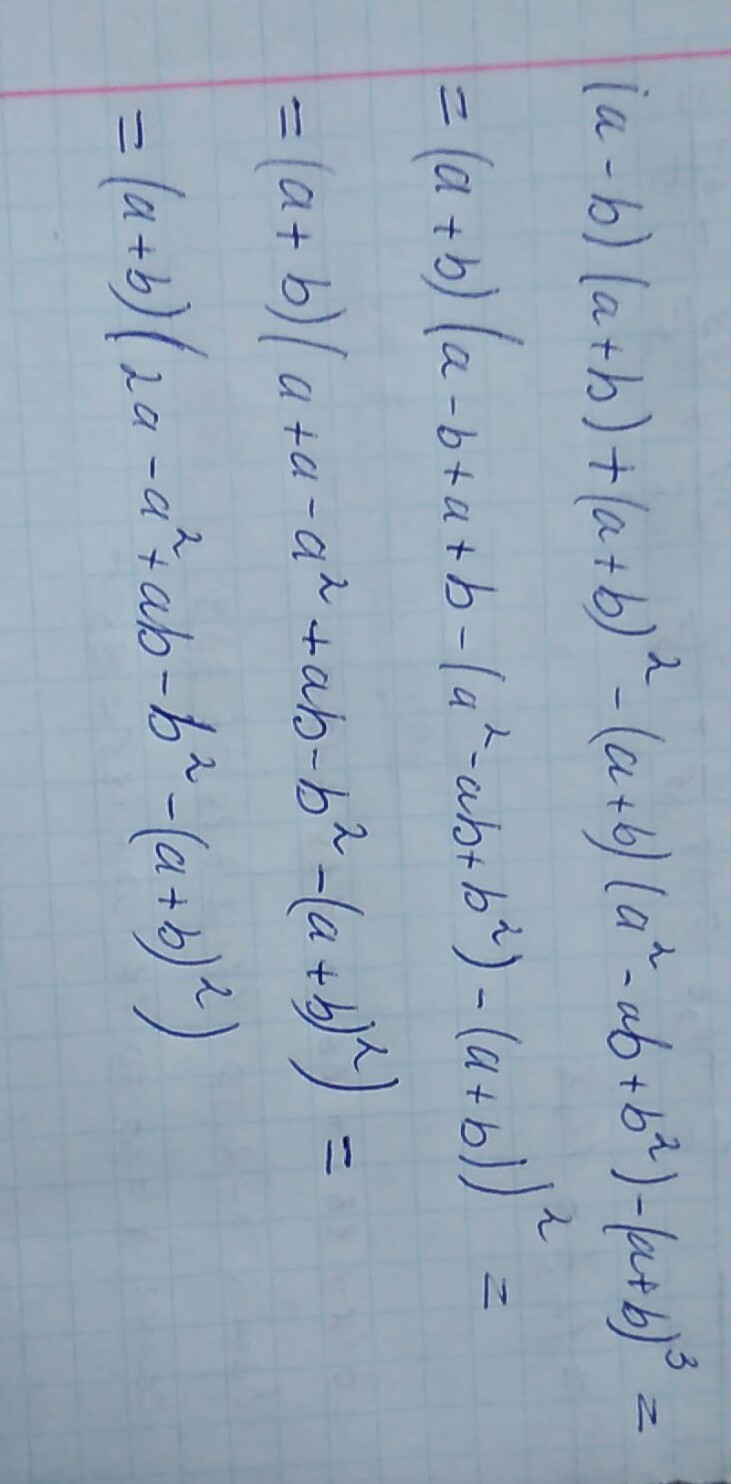 (a-b)(a+b)+(a+b)²-(a+b)(a²-ab+b²)-(a+b)³=
=(a+b)(a-b+a+b-(a²-ab+b²)-(a+b))²=
=(a+b)(a+a-a²+ab-b²-(a+b)²)=
=(a+b)(2a-a²+ab-b²-(a+b)²)